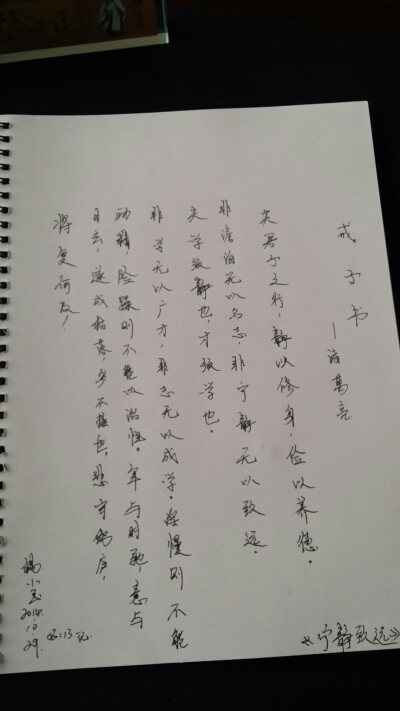 戒子书
—诸葛亮
夫君子之行，静以修身，俭以养德。
非澹泊无以名志，非宁静无以致远。
夫学欲静也，才欲学也。
非学无以广才，非志无以成学。淫慢则不能
励精，险躁则不能以治性。年与时驰，意与
日去，遂成枯落，多不接世，悲守穷庐，
将复何及！
《宁静致远》
杨小
2014.
10
29.